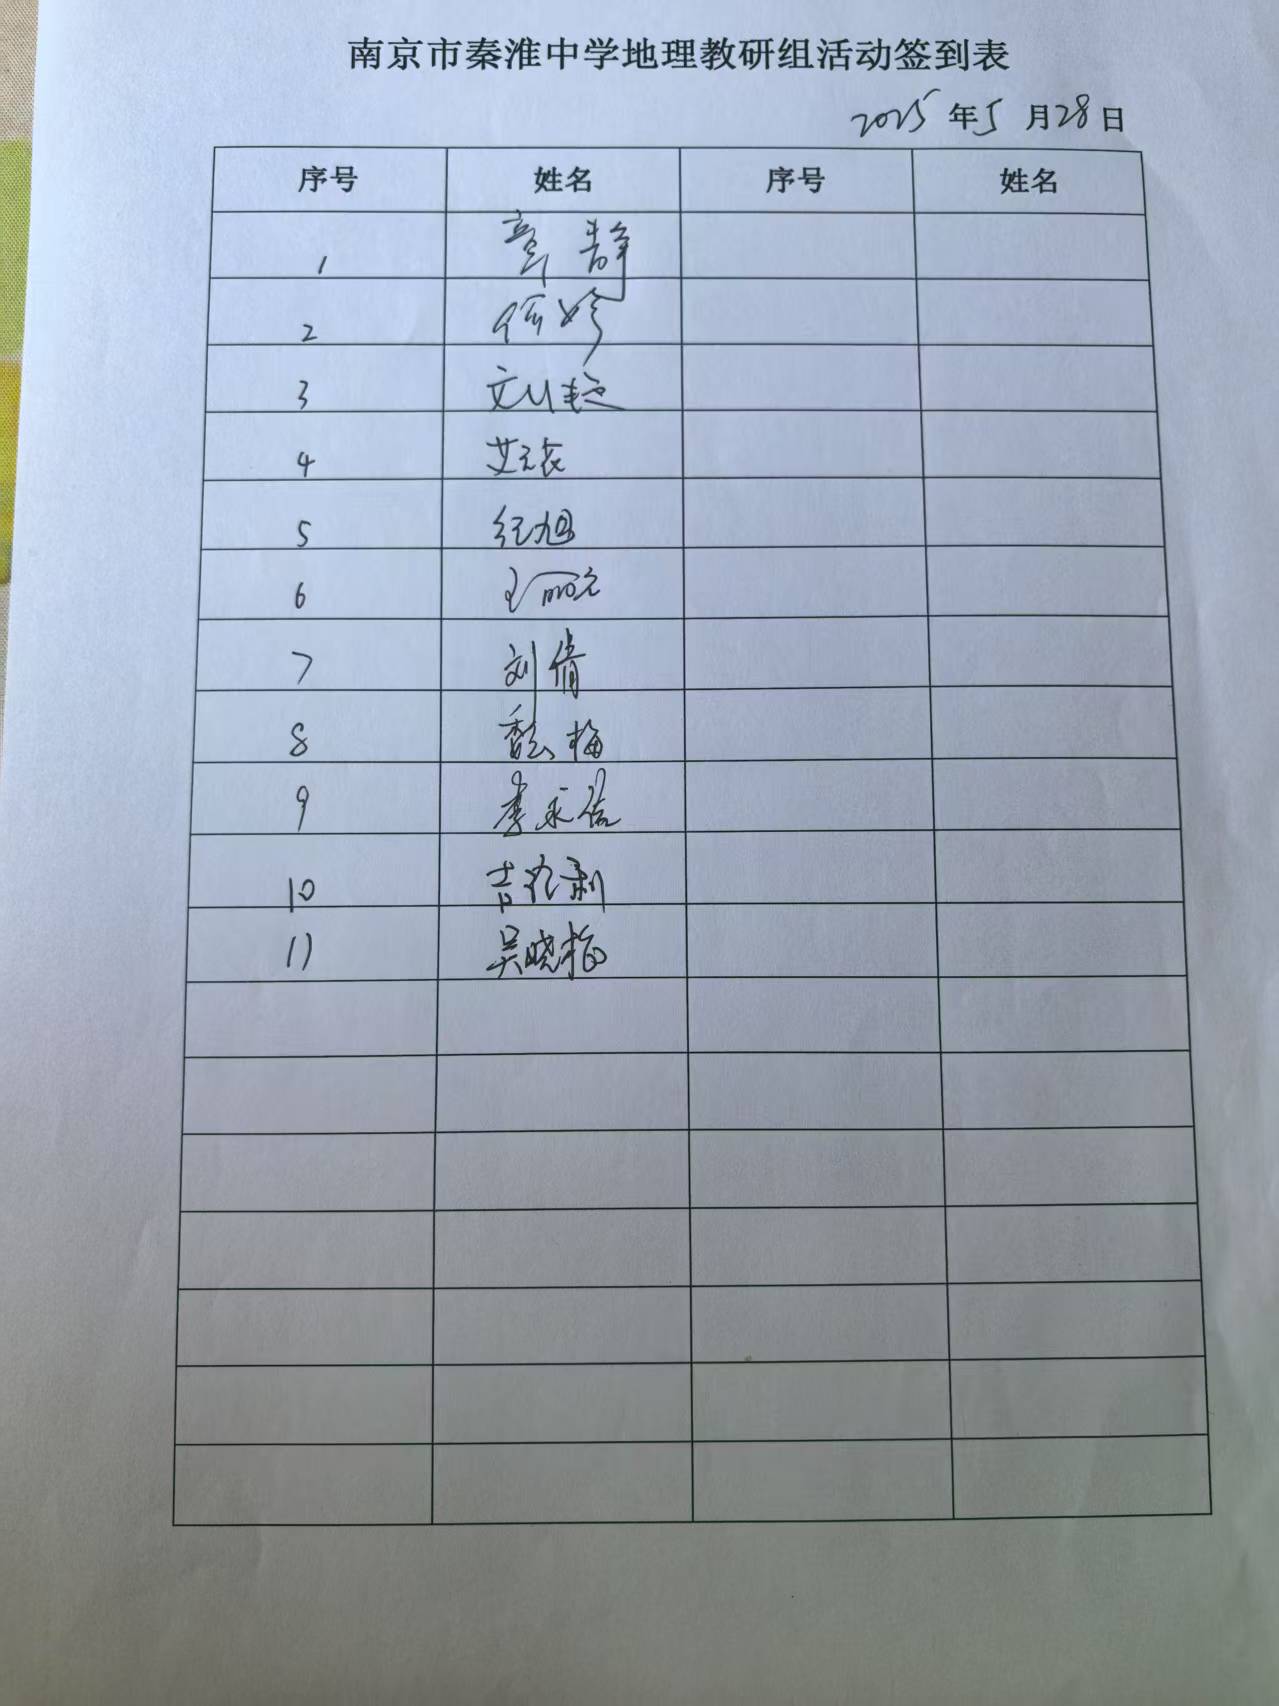 南京市秦淮中学地理教研组活动签到表
2025年5月28日
序号 姓名 序号 姓名
1 章静
2 何婷
3
4
5 纪旭
6
7 刘倩
8 魏梅
9 李永信
10 吉
11 吴晓梅